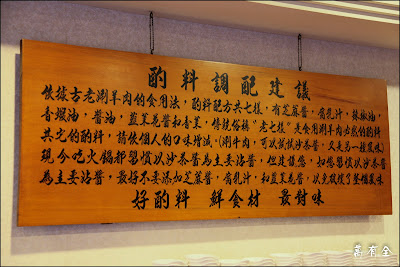 酌料調配建議
依據古老涮羊肉的食用法，酌料配方共七樣，有芝蔴醬，腐乳汁，辣椒油，
香蝦油，醬油，韮菜花醬和香菜，傳統俗稱"老七樣"是食用涮羊肉必然的酌料
共允的酌料，請依個人的口味增減，(涮牛肉，可以試試沙茶醬，又是另一種風味)
現今吃火鍋都習慣以沙茶醬為主要沾醬，但建議您，如您習慣以沙茶醬
為主要沾醬，最好不要添加芝蔴醬，腐乳汁，和韮菜花醬，以免破壞了整個風味
好酌料 鮮食材 最對味
萬有全